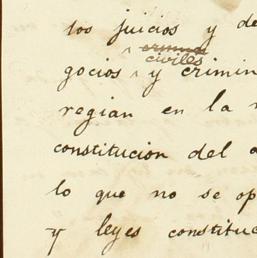 los juicios y de
civiles
gocios y crimin
regian en la
constitucion del a
lo que no se op
y leyes constituc